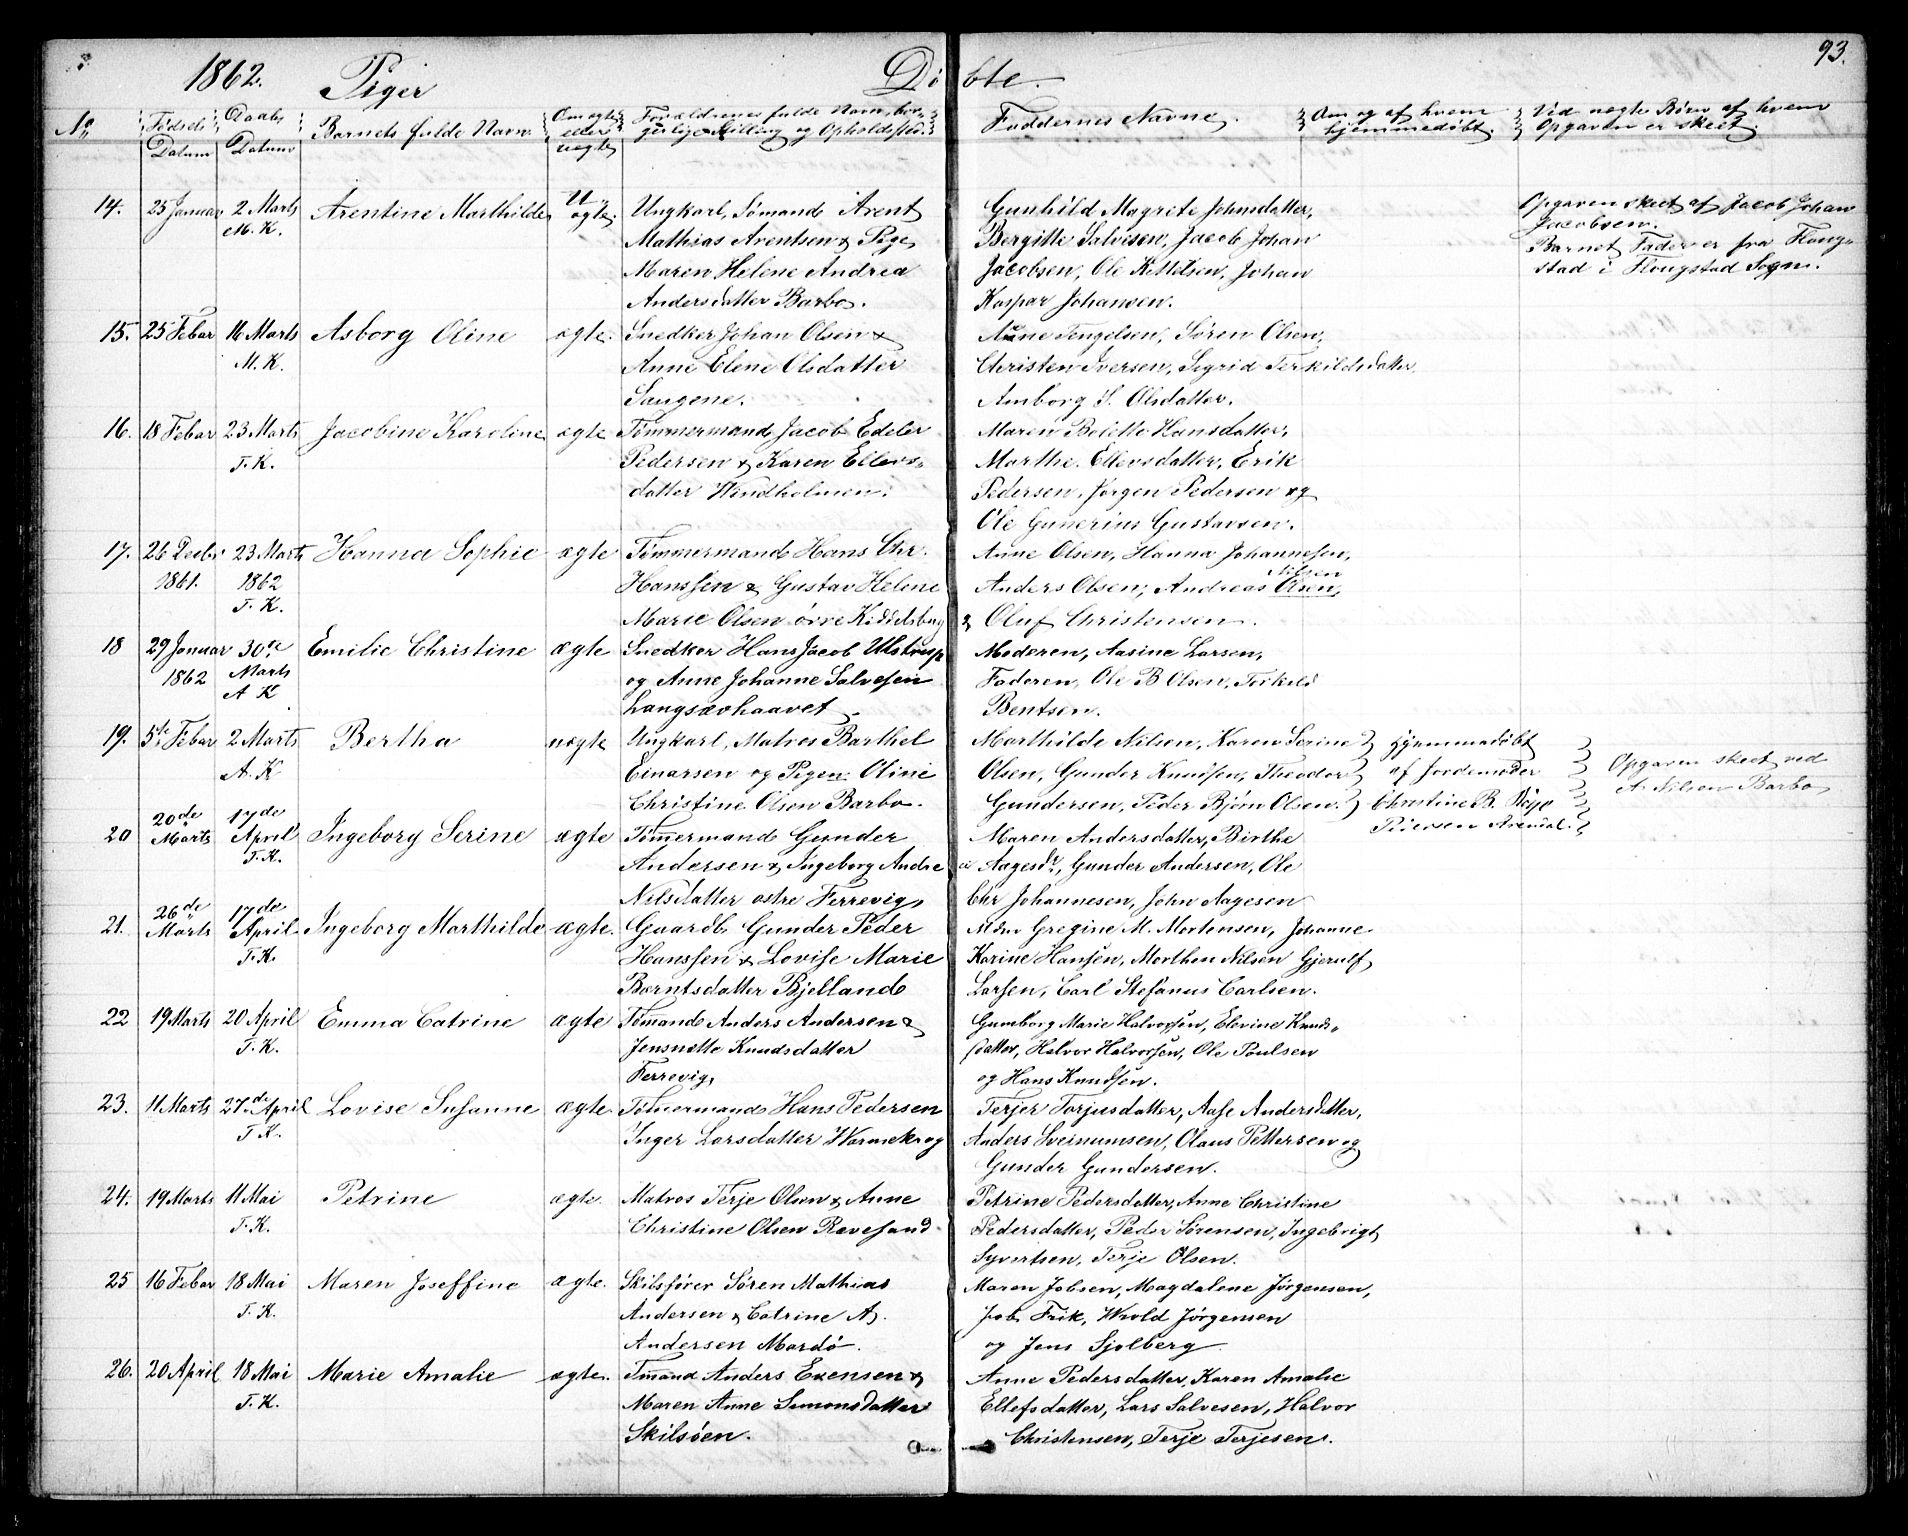 1862. Piger Döbte. 93.
No Fødsels Datum Daabs Datum Barnets fulde Navn Om ægte eller uægte Forældrenes fulde Navn, borgerlige Stilling og Opholdsted. Faddernes Navne. Om og af hvem hjemmedöbt. Ved uægte Børn af hvem Opgaven er skeet.
14. 25 Januar 2 Marts Arentine Marthilde U, ægte. Ungkarl, Sömand Arent Gunhild Magrete Johnsdatter, Opgaven skeet af Jacob Johan
M. K. Mathias Arentsen & Pige Bergitte Salvesen, Jacob Johan Jacobsen.
Maren Helene Andrea Jacobsen, Ole Kittilsen, Johan Barnet Fader er fra Flong-
Andersdatter Barbo. Kaspar Johansen. stad i Flongstad Sogn.
15. 25 Febar 16 Marts Asborg Oline ægte. Snedker Johan Olsen & Anne Tengelsen, Sören Olsen,
M. K. Anne Elene Olsdatter Christen Iversen, Sigrid Terkildsdatter
Saugene. Amborg S. Olsdatter.
16. 18 Febar 23 Marts Jacobine Karoline ægte Tømmermand Jacob Edeler Maren Bolette Hansdatter,
T. K. Pedersen & Karen Ellevs- Marthe Ellevsdatter, Erik
datter Windholmen. Pedersen, Jørgen Pedersen og
Ole Gunerius Gustavsen.
17. 26 Decbr 23 Marts Hanna Sophie ægte Tømmermand Hans Chr. Anne Olsen, Hanna Johannesen,
1861. 1862 Hanssen & Gustav Helene Anders Olsen, Andreas Olsen, Nilsen
T. K. Marie Olsen örre Kiddelsbug & Oluf Christensen.
18 29 Januar 30te Emilie Christine ægte Snedker Hans Jacob Ulstrup Moderen, Aasine Larsen,
1862 Marts og Anne Johanne Salvesen Faderen, Ole B Olsen, Terkeld
A K Langsævhaavet Bentsen.
19. 5te Febar 2 Marts Bertha uægte Ungkarl, Matros Barthel Marthilde Nilsen, Karen Serine Hjemmedöbt
A. K Einarsen og Pigen Oline Olsen, Gunder Knudsen, Theodor af Jordemoder Opgaven skeet ved
Christine Olsen Barbo. Gundersen, Peder Bjørn Olsen. Christine B. A. Nilsen Barbo
20 20de Marts 17de April Ingeborg Serine ægte Tømermand Gunder Maren Andersdatter, Birthe Pedersen Arendal.
T. K. Andersen & Ingeborg Andre a Aagesdr, Gunder Andersen, Ole
Nilsdatter østre Ferrevig, Chr Johannesen, John Aagesen
21. 26de Marts 17de April Ingeborg Marthilde ægte. Gaardb. Gunder Peder Mdm Gregine M. Mortensen, Johanne
T. K. Hanssen & Lovise Marie Karine Hansen, Morthen Nilsen Gjerulf
Berntsdatter Bjelland Larsen, Carl Stefanus Carlsen.
22 19 Marts 20 April Emma Catrine ægte Tømand Anders Andersen & Gumborg Marie Halvorsen, Elevine Knuds-
T. K. Jensnette Knudsdatter datter, Halvor Halvorsen, Ole Poulsen
Ferrevig, og Hans Knudsen.
23. 11 Marts 27de April Lovise Susanne ægte Tømermand Hans Pedersen Terjer Torjusdatter, Aase Andersdatter,
T K. Inger Larsdatter Warmekrog Anders Sveinumsen, Olaus Pettersen og
Gunder Gundersen.
24. 19 Marts 11 Mai Petrine ægte. Matros Terje Olsen & Anne Petrine Pedersdatter, Anne Christine
T. K. Christine Olsen Revesand Pedersdatter, Peder Sörensen, Ingebrigt
Syvertsen, Terje Olsen.
25 16 Febar 18 Mai Maren Joseffine ægte. Skilsfører Søren Mathias Maren Jobsen, Magdalene Jörgensen,
T. K. Andersen & Catrine A. Job Frik, Wrold Jørgensen
Andersen Mardö. og Jens Sjolberg
26. 20 April 18 Mai Marie Amalie ægte. Tmand Anders Evensen & Anne Pedersdatter, Karen Amalie
T. K. Maren Anne Simonsdatter Ellefsdatter, Lars Salvesen, Halvor
Skilsöen. Christensen, Terje Terjesen.